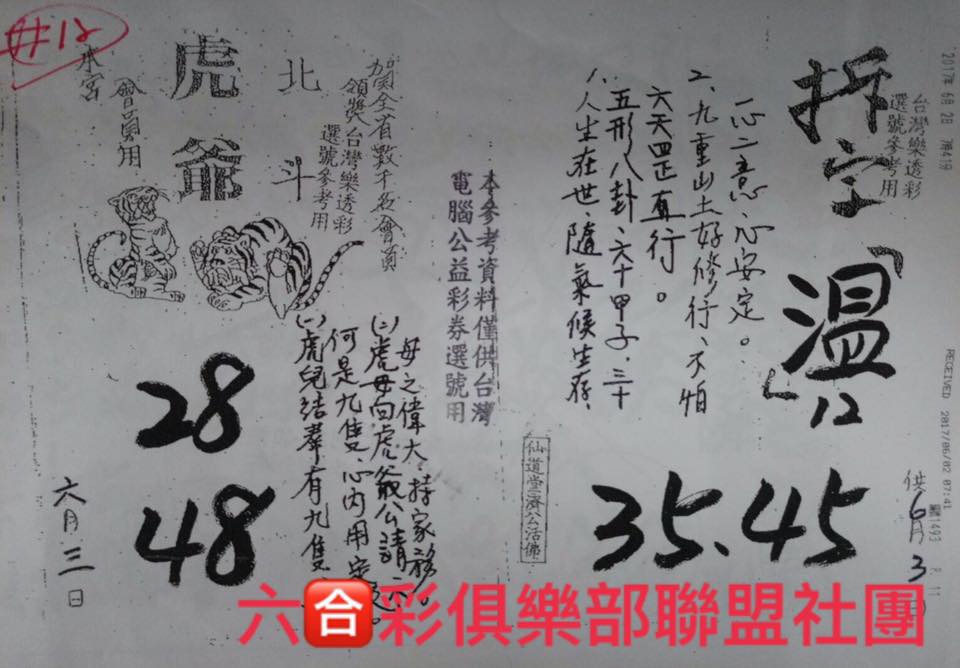 2017年 6月 2日
RECEIVED 2017/06/02 07:41
台灣樂透彩
選號參考用
拆字「温」
12
35、45
供6月3日
人生在世、隨氣候生存、
五形八卦、六十甲子、三十
六天四正直行。
二、九重山土好修行、不怕
一心二意、心安定。
仙道堂濟公活佛
本參考資料僅供台灣
電腦公益彩券選號用
賀全省數千名會員
領獎台灣樂透彩
選號參考用
北斗
虎爺
本宮
會員用
#12
(一)虎兒結羣有九隻、
何是九隻、心內用
(二)虎母向虎爺公請
母之偉大、持家
28
48
六月三日
六合彩俱樂部聯盟社團